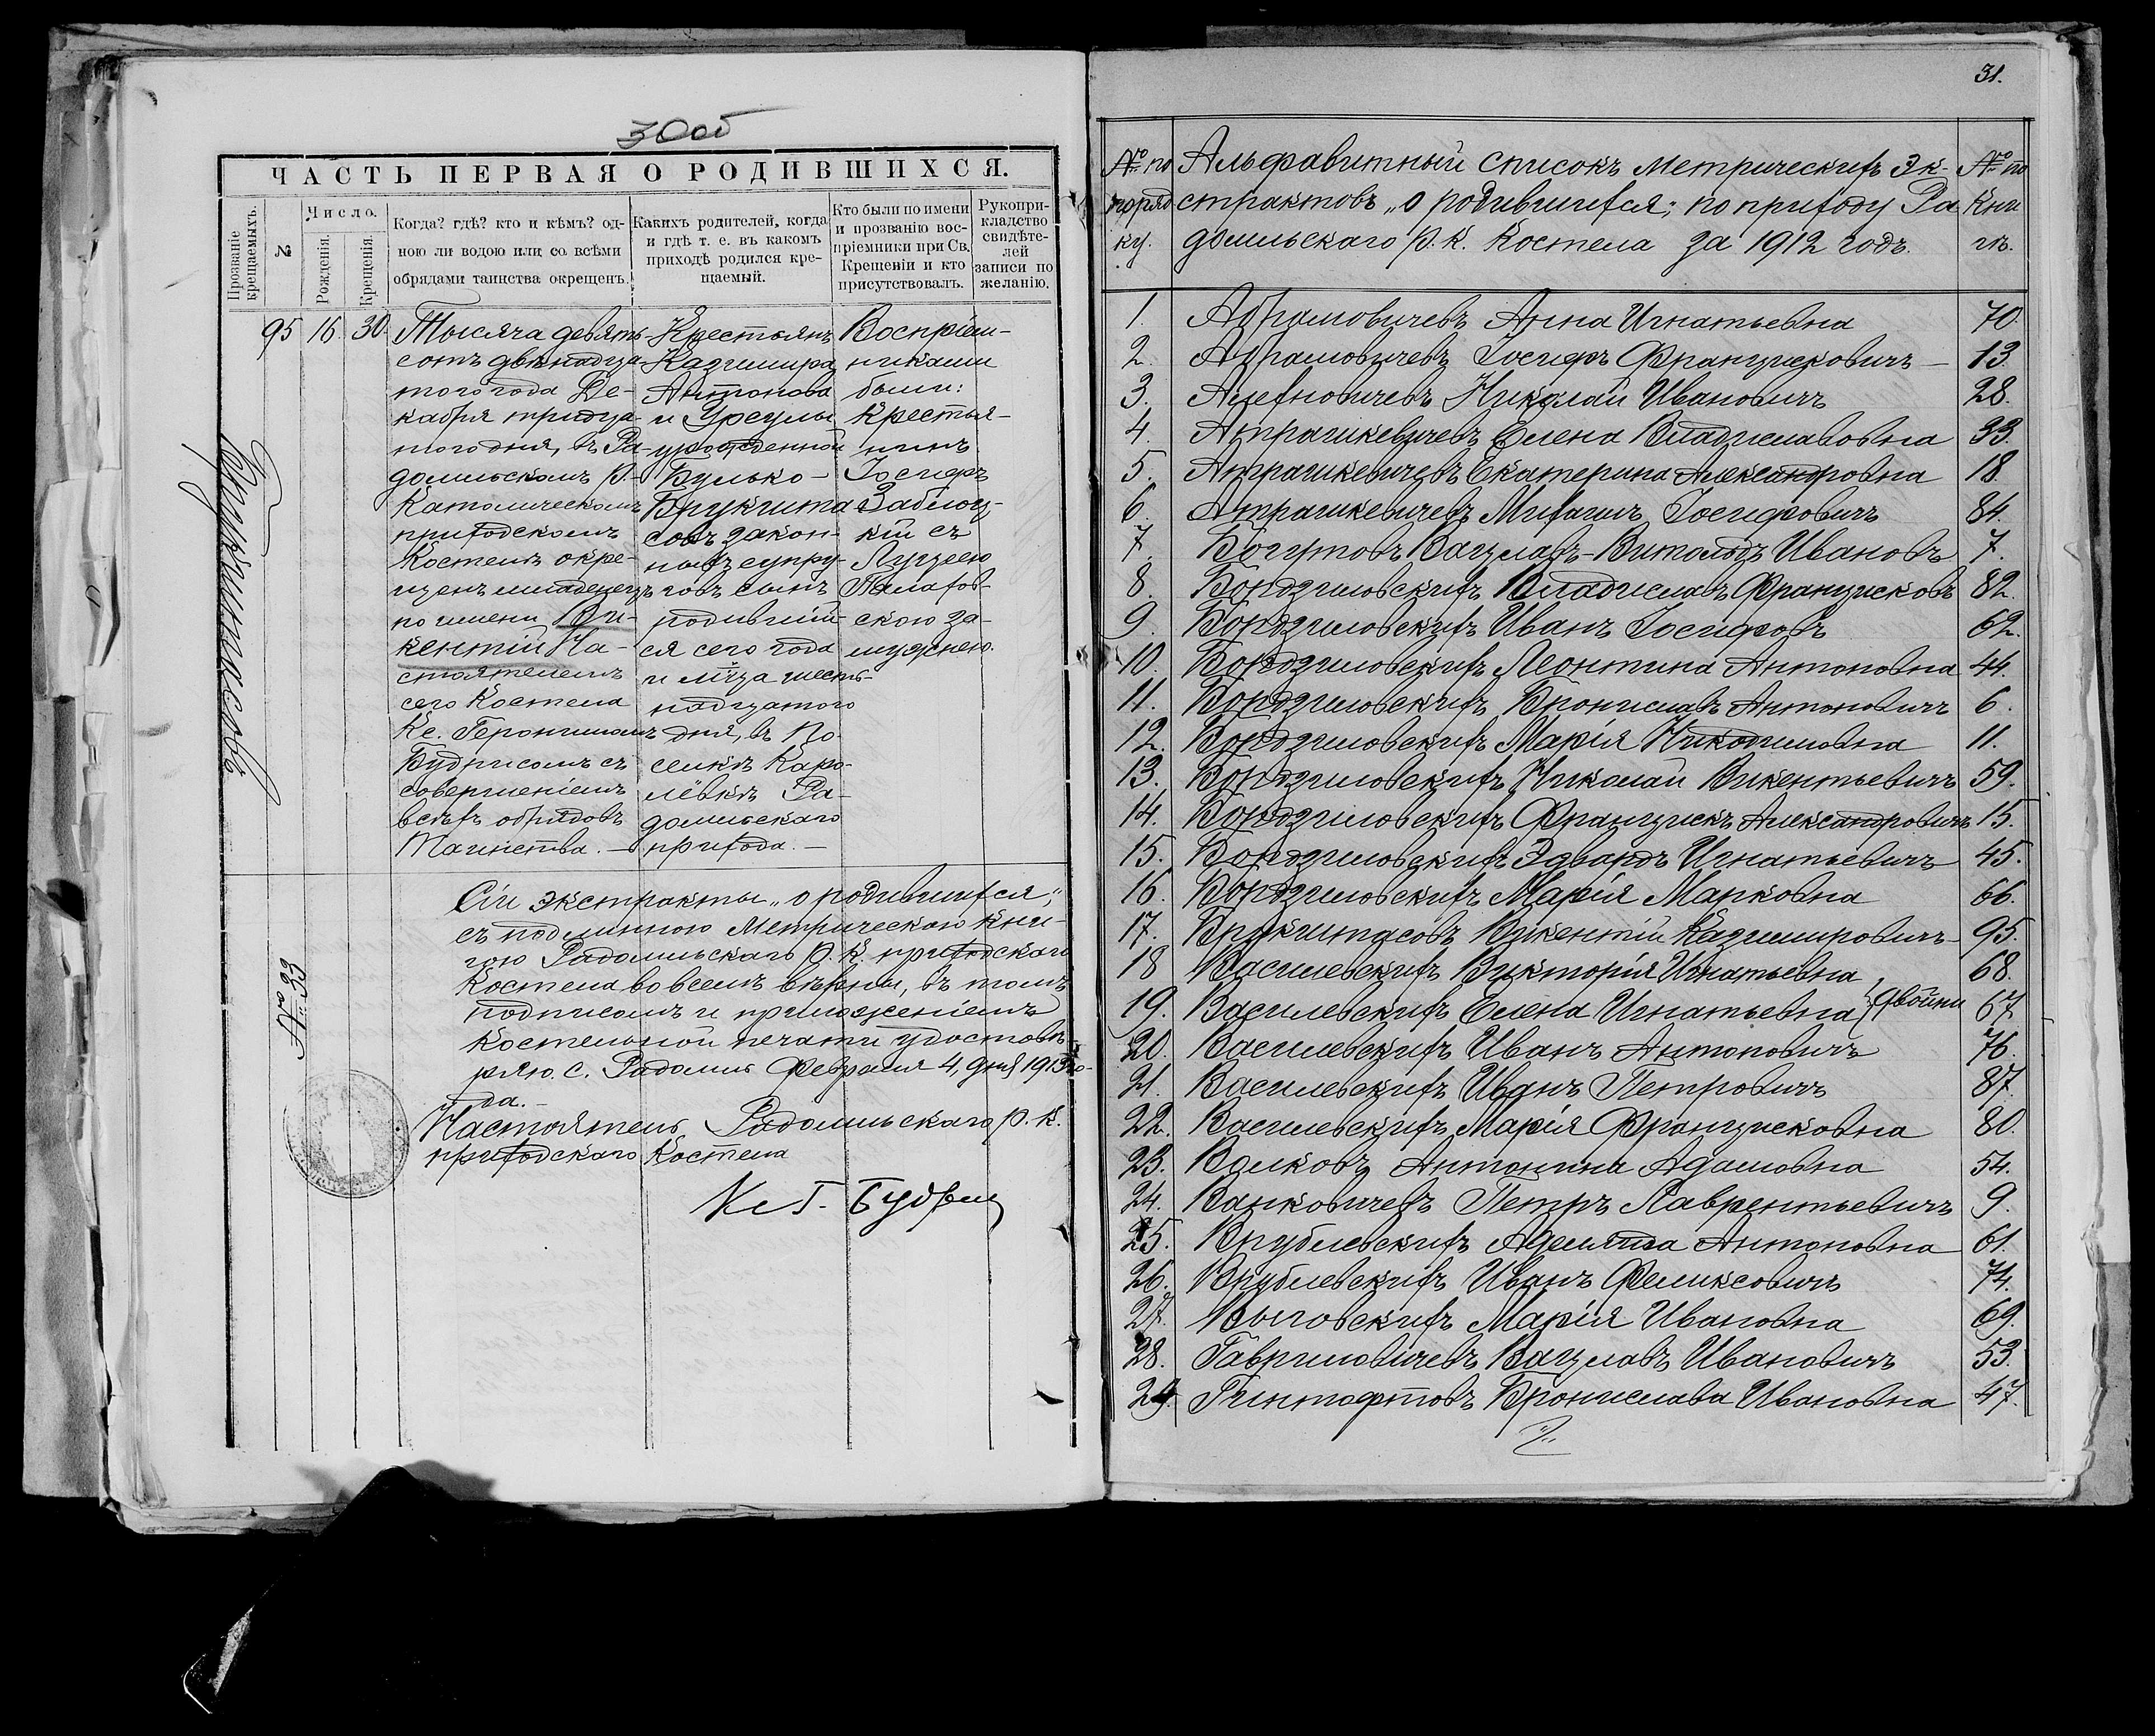 30об
ЧАСТЬ ПЕРВАЯ О РОДИВШИХСЯ.
Прозваніе крещаемыхъ.
№
Число.
Рожденія.
Крещенія.
Когда? гдѣ? кто и кѣмъ? од-
ною ли водою или со всѣми
обрядами таинства окрещенъ.
Какихъ родителей, когда
и гдѣ т. е. въ какомъ
приходѣ родился кре-
щаемый.
Кто были по имени
и прозванію вос-
пріемники при Св.
Крещеніи и кто
присутствовалъ.
Рукопри-
кладство
свидѣте-
лей
записи по
желанію.
Брукштасовъ
95 16. 30.
Тысяча девять-
сотъ двѣнадца-
того года Де-
кабря тридца-
того дня, въ Ра-
домльскомъ р.-
Католическомъ
приходскомъ
Костелѣ окре-
щенъ младенецъ
по имени Ви-
кентій На-
стоятелемъ
сего Костела
Кс. Геронимомъ
Будрисомъ съ
совершеніемъ
всѣхъ обрядовъ
Таинства. —
Крестьянъ
Казимира
Антонова
и Урсулы
урожденной
Булько-
Брукштa
совъ закон-
ныхъ супру-
говъ сынъ
родившій-
ся сего года
и м̃ца шест-
надцатого
дня, въ По-
селкѣ Каро-
лёвкѣ Ра-
домльскаго
прихода. —
Воспріем-
никами
были:
Крестья-
нинъ
Іосифъ
Заблоц-
кій съ
Луцею
Малахов-
скою за-
мужнею.
№ 95
Сіи экстракты „о родившихся“,
съ подлинною Метрическою кни-
гою Радомльскаго р. к. приходскаго
Костела во всемъ вѣрны, въ томъ
подписомъ и приложеніемъ
Костельной печати удостовѣ-
ряю. с. Радомль Февраля 4, дня 1913 го-
да. —
Настоятель Радомльскаго р. к.
приходскаго Костела
Кс Г. Будрис
31.
№ по
поряд
ку.
Альфавитный списокъ Метрическихъ Эк-
страктовъ „о родившихся“, по приходу Ра
домльскаго р. к. Костела за 1912 годъ.
№ по
Кни
гѣ.
1. Абрамовичевъ Анна Игнатьевна 70.
2. Абрамовичевъ Іосифъ Францисковичъ — 13.
3. Алехновичевъ Николай Ивановичъ 28.
4. Атрашкевичевъ Елена Владиславовна 33.
5. Атрашкевичевъ Екатерина Александровна 18.
6. Атрашкевичевъ Михаилъ Іосифовичъ 84.
7. Богутовъ Вацлавъ-Витольдъ Ивановъ 7.
8. Бордзиловскихъ Владиславъ Францисковъ 82.
9. Бордзиловскихъ Иванъ Іосифовъ 62.
10. Бордзиловскихъ Леонтина Антоновна 44.
11. Бордзиловскихъ Брониславъ Антоновичъ 6.
12. Бордзиловскихъ Марія Никодимовна 11.
13. Бордзиловскихъ Николай Викентьевичъ 59.
14. Бордзиловскихъ Францискъ Александровичъ 15.
15. Бордзиловскихъ Эдвардъ Игнатьевичъ 45.
16. Бордзиловскихъ Марія Марковна 66.
17. Брукштасовъ Викентій Казимировичъ — 95.
18 Василевскихъ Викторія Игнатьевна 68.
19. Василевскихъ Елена Игнатьевна } двойни 67
20. Василевскихъ Иванъ Антоновичъ 76.
21. Василевскихъ Иванъ Петровичъ 87.
22. Василевскихъ Марія Францисковна 80.
23. Волковъ Антонина Адамовна 54.
24. Ванковичевъ Петръ Лаврентьевичъ 9.
25. Врублевскихъ Аделяида Антоновна 61.
26. Врублевскихъ Иванъ Феликсовичъ 74.
27. Выговскихъ Марія Ивановна 69.
28. Гавриловичевъ Вацлавъ Ивановичъ 53.
29. Гинтофтовъ Бронислава Ивановна 47.